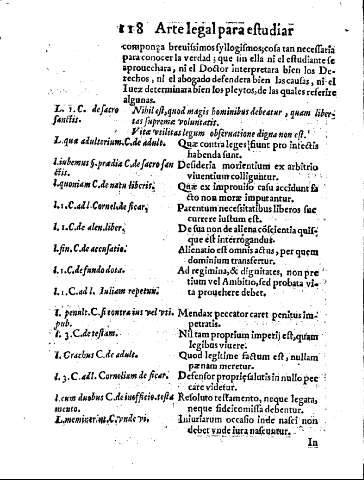 118 Arte legal para estudiar
componga breuissimos syllogismos; cosa tan necessaria
para conocer la verdad; que sin ella ni el estudiante se
aprouechara, ni el Doctor interpretara bien los De-
rechos, ni el abogado defendera bien las causas, ni el
Iuez determinara bien los pleytos, de las quales referire
algunas.
L. 1. C. de sacro Nihil est, quod magis hominibus debeatur, quam liber-
sanctis. tas supremæ voluntatis.
Vitæ vtilitas legum obseruatione digna non est.
L. quæ adulterium C. de adult. Quæ contra leges fiunt pro infectis
habenda sunt.
l. iubemus §. prædia C. de sacro san Desideria morientium ex arbitrio
ctis. viuentium colliguntur.
l. quoniam C. de natu liberis. Quæ ex improuiso casu accidunt fa
cto non moræ imputantur.
l. 1. C. ad l. Cornel. de sicar. Patentum necessitatibus liberos suc
currere iustum est.
l. 1. C. de alen. liber. De sua non de aliena cōscientia quis-
que est interrogandus.
l. fin. C. de accusatio. Alienatio est omnis actus, per quem
dominium transfertur.
l. 1. C. de fundo dota. Ad regimina, & dignitates, non pre
tium vel Ambitio, sed probata vi
l. 1. C. ad l. Iuliam repetun. ta prouehere debet.
l. penult. C. si contra ius vel vti. Mendax peccator caret penitus im-
pub. petratis.
l. 3. C. de testam. Nil tam proprium imperij est, quam
legibus viuere.
l. Grachus C. de adult. Quod legitime factum est, nullam
pœnam meretur.
l. 3. C. ad l. Cornelium de sicar. Defensor propriæ salutis in nullo pec
care videtur.
l. cum duobus C. de inofficio. testa Resoluto testamento, neque legata,
mento. neque fideicomissa debentur.
L. meminerint C. vnde vi. Iniuriarum occasio inde nasci non
debet vnde iura nascuntur.
In